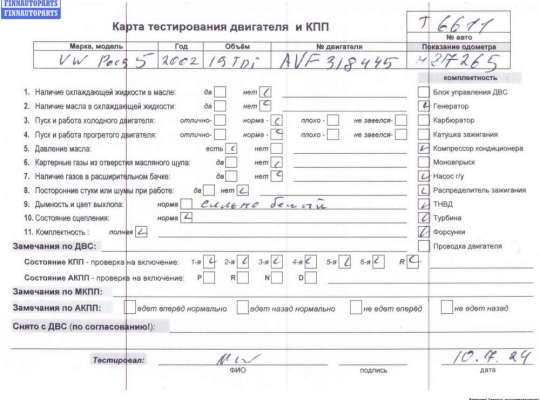 FINNAUTOPARTS
FINNAUTOPARTS
FINNAUTOPARTS
Карта тестирования двигателя и КПП
T 6611
№ авто
Марка, модель Год Объём № двигателя Показание одометра
VW 5 2002 1.9 TDi AVF 318445 427265
комплектность
1. Наличие охлаждающей жидкости в масле: да нет
2. Наличие масла в охлаждающей жидкости: да нет
3. Пуск и работа холодного двигателя: отлично- норма - плохо - не завелся-
4. Пуск и работа прогретого двигателя: отлично- норма - плохо - не завелся-
5. Давление масла: есть нет
6. Картерные газы из отверстия масляного щупа: да нет
7. Наличие газов в расширительном бачке: да нет
8. Посторонние стуки или шумы при работе: да нет
9. Дымность и цвет выхлопа: норма сильно белый
10. Состояние сцепления: норма
11. Комплектность : полная
Блок управления ДВС
Генератор
Карбюратор
Катушка зажигания
Компрессор кондиционера
Моновпрыск
Насос г/у
Распределитель зажигания
ТНВД
Турбина
Форсунки
Проводка двигателя
Замечания по ДВС:
Состояние КПП - проверка на включение: 1-я 2-я 3-я 4-я 5-я 6-я R
Состояние АКПП - проверка на включение: P R N D
Замечания по МКПП:
Замечания по АКПП: едет вперёд нормально едет назад нормально не едет вперёд не едет назад
Снято с ДВС (по согласованию!):
Тестировал: 10.7.24
ФИО подпись дата